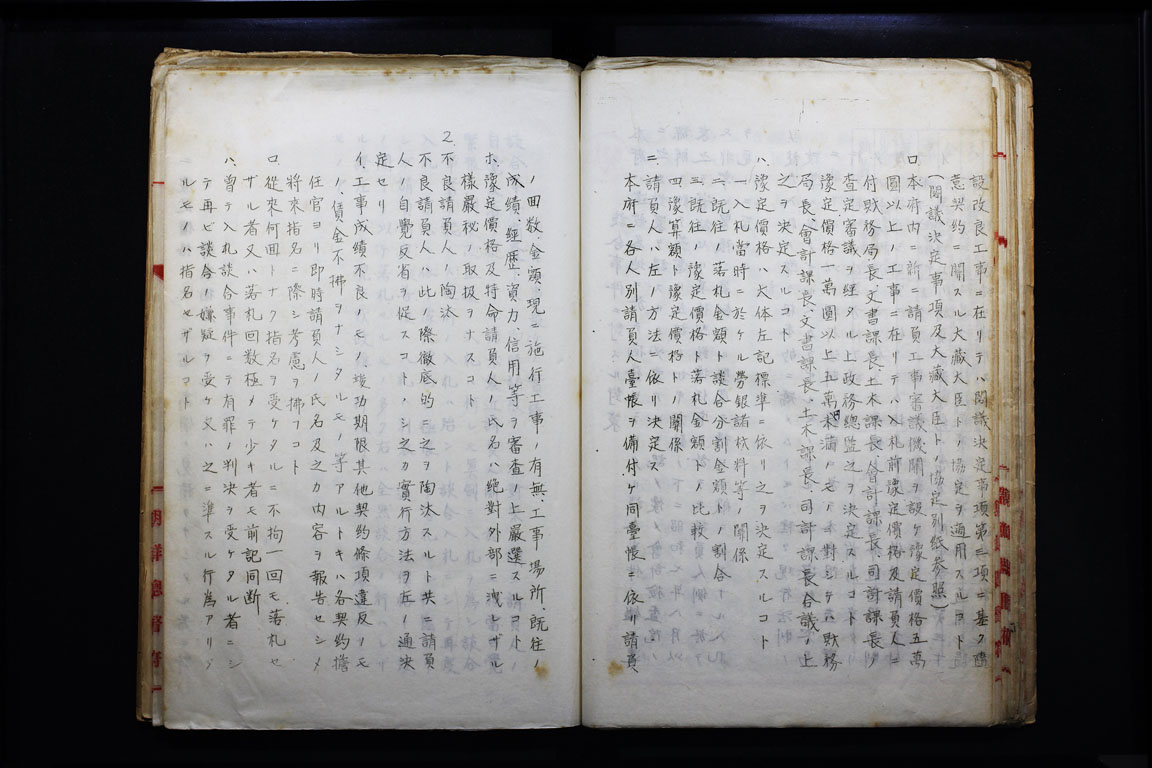 設改良工事ニ在リテハ閣議決定事項第三項ニ基ク隨
意契約ニ關スル大藏大臣トノ協定ヲ適用スルコト
(閣議決定事項及大藏大臣トノ協定別紙參照)
ロ、本府內ニ新ニ請負工事審議機關ヲ設ケ豫定價格五萬
圓以上ノ工事ニ在リテハ入札前豫定價格及請負人ニ
付財務局長、文書課長、土木課長、會計課長、司計課長ノ
查定審議ヲ經タル上政務總監之ヲ決定スルコト
豫定價格一萬圓以上五萬圓未滿ノモノニ對シテハ財務
局長、會計課長、文書課長、土木課長、司計課長合議ノ上
之ヲ決定スルコト
ハ、豫定價格ハ大体左記標準ニ依リ之ヲ決定スルコト
一、入札當時ニ於ケル勞銀諸材料等ノ關係
二、既往ノ落札金額ト談合分割金額トノ割合
三、既往ノ豫定價格ト落札金額トノ比較
四、豫算額ト豫定價格トノ關係
ニ、請負人ハ左ノ方法ニ依リ決定ス
本府ニ各人別請負人臺帳ヲ備付ケ同臺帳ニ依リ請負
ノ回數金額、現ニ施行工事ノ有無、工事場所、既往ノ
成績、經歷、資力、信用等ヲ審査ノ上嚴選スルコト
ホ、豫定價格及特命請負人ノ氏名ハ絕對外部ニ洩レザル
樣嚴秘ノ取扱ヲナスコト
2.不良請負人ノ陶汰
不良請負人ハ此ノ際徹底的ニ之ヲ陶汰スルト共ニ請負
人ノ自覺反省ヲ促スコトトシ之カ實行方法ヲ左ノ通決
定セリ
イ、工事成績不良ノモノ、竣功期限其他契約條項違反ノモ
ノ、賃金不拂ヲナシタルモノ等アルトキハ各契約擔
任官ヨリ卽時請負人ノ氏名及之カ內容ヲ報告セシメ
將來指名ニ際シ考慮ヲ拂フコト
ロ、從來何回トナク指名ヲ受ケタルニ不拘一回モ落札セ
ザル者又ハ落札回數極メテ少キ者モ前記同斷
ハ、曾テ入札談合事件ニテ有罪ノ判決ヲ受ケタル者ニシ
テ再ビ談合ノ嫌疑ヲ受ケ又ハ之ニ準スル行為アリタ
ルモノハ指名セザルコト